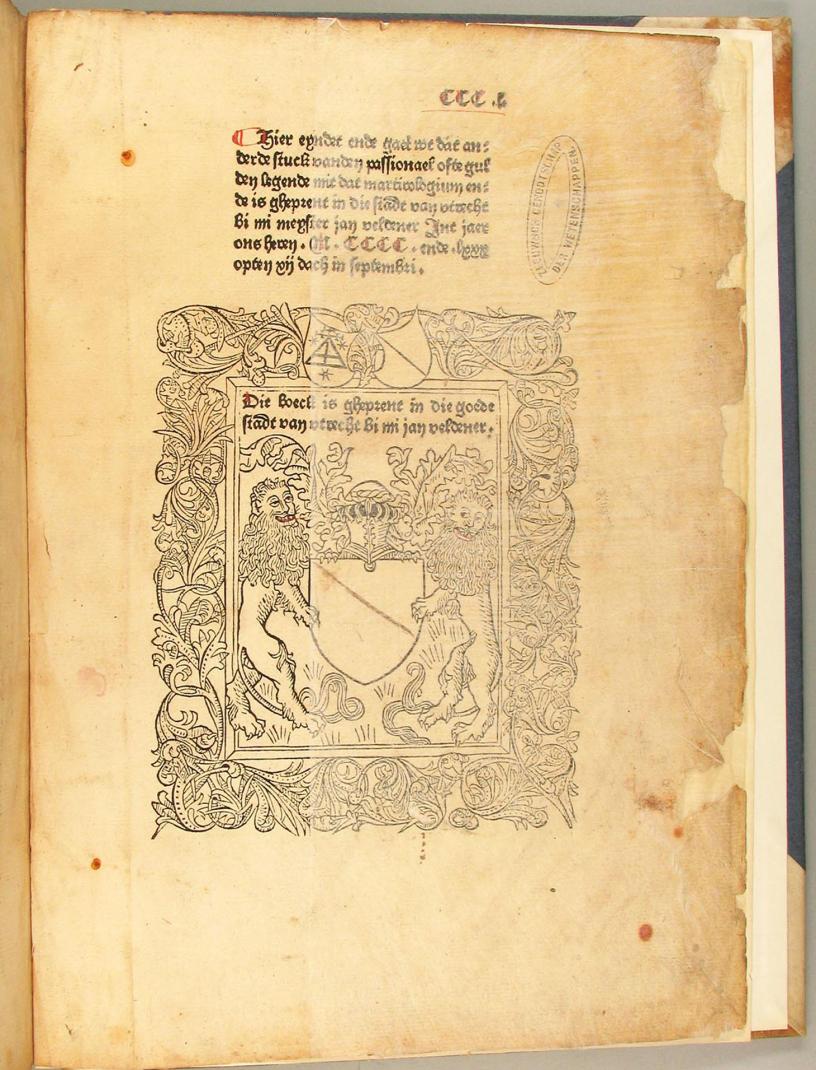 CCC .L
Hier eyndet ende gaet wt dat an=
der de stuck vanden passionael ofte gul
den legende mit dat martirologium en=
de is gheprent in die stadt van vtrecht
bi mi meyster jan veldener Int jaer
ons heren . M . CCCC . ende . lxxx
opten xij dach in septembri .
ZEEUWSCH GENOOTSCHAP
DER WETENSCHAPPEN.
Dit boeck is gheprent in die goede
stadt van vtrecht bi mi jan veldener .